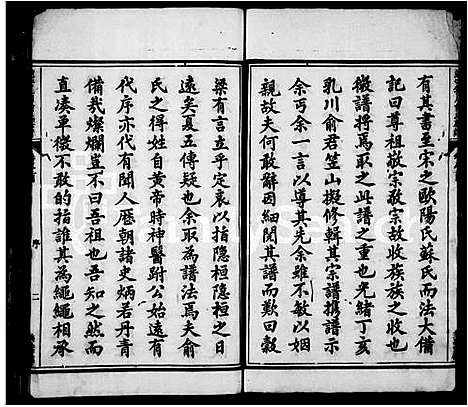 有其書至宋之歐陽氏蘇氏而法大備
記曰尊祖敬宗敬宗故收族族之收也
微譜將焉取之此譜之重也光緒丁亥
乳川俞君笠山擬修輯其宗譜撰譜示
余丐余一言以導其先余雖不敏以姻
親故夫何敢辭因細閱其譜而歎曰穀
梁有言立乎定哀以指隱桓隱桓之日
遠矣夏五傳疑也余取為譜法焉夫俞
氏之得姓自黃帝時神醫跗公始遠有
代序亦代有聞人歷朝諸史炳若丹青
備哉燦爛豈不曰吾祖也吾知之然而
直湊單微不敢的指誰其為繩繩相承
序
二